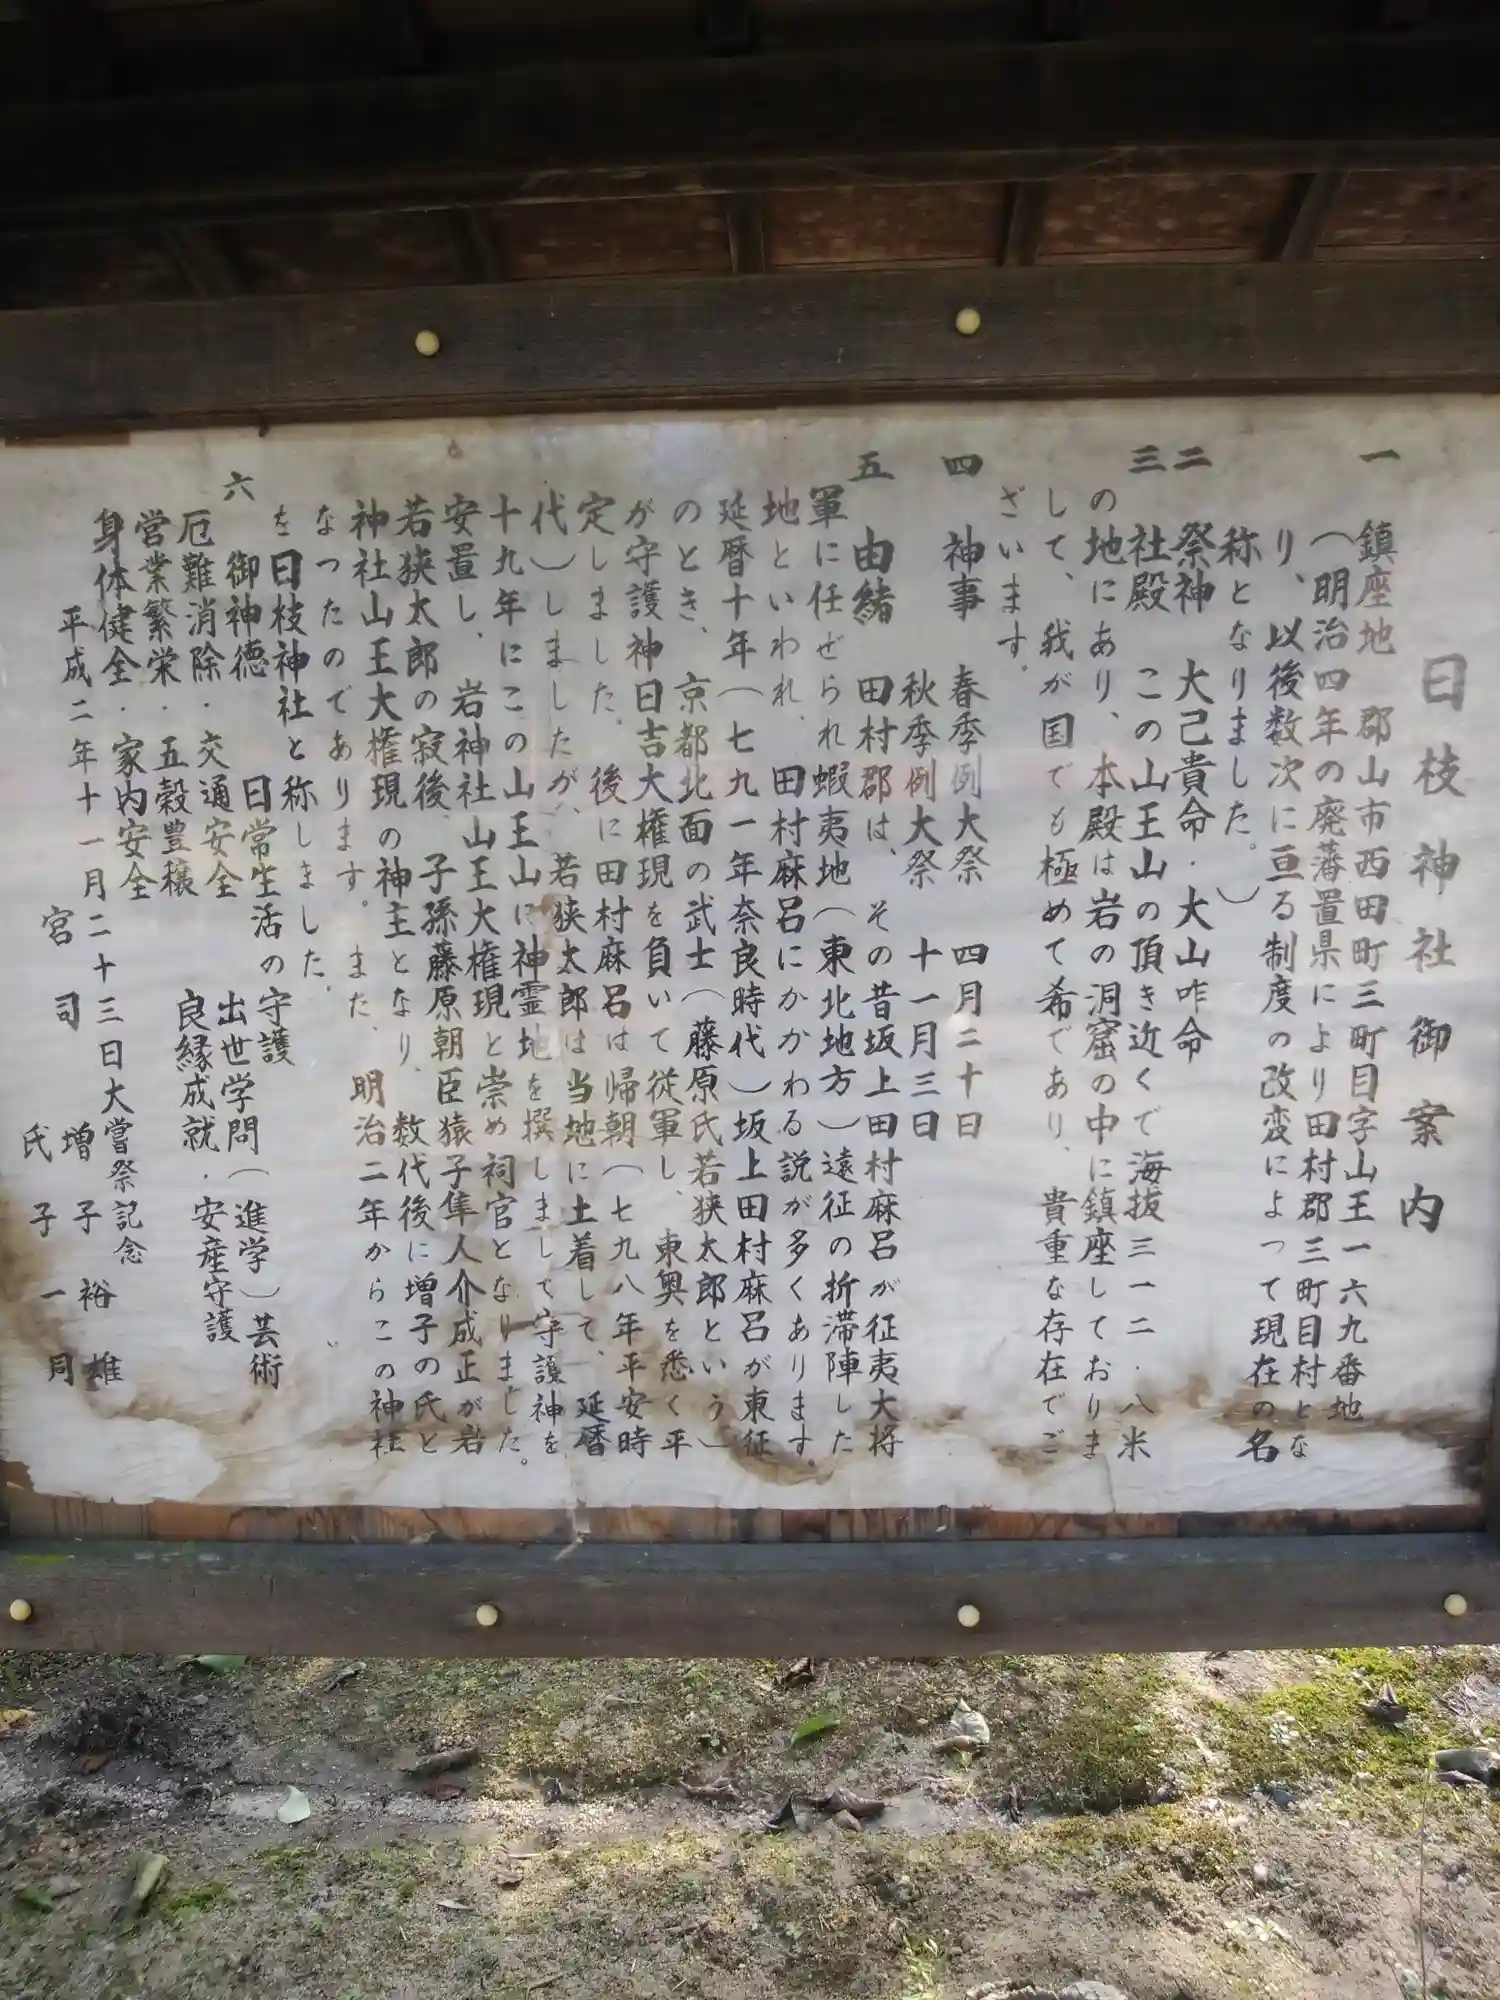 日枝神社御案内
一 鎮座地 郡山市西田町三町目字山王一六九番地
(明治四年の廃藩置県により田村郡三町目村とな
り、以後数次に亘る制度の改変によって現在の名
称となりました。)
二 祭神 大己貴命・大山咋命
三 社殿 この山王山の頂き近くで海抜三一二・八米
の地にあり、本殿は岩の洞窟の中に鎮座しておりま
して、我が国でも極めて希であり、貴重な存在でご
ざいます。
四 神事 春季例大祭 四月二十日
秋季例大祭 十一月三日
五 由緒 田村郡は、その昔坂上田村麻呂が征夷大将
軍に任ぜられ蝦夷地(東北地方)遠征の折滞陣した
地といわれ、田村麻呂にかかわる説が多くあります。
延暦十年(七九一年奈良時代)坂上田村麻呂が東征
のとき、京都北面の武士(藤原氏若狭太郎という)
が守護神日吉大権現を負いて従軍し、東奥を悉く平
定しました。後に田村麻呂は帰朝(七九八年平安時
代)しましたが、若狭太郎は当地に土着して、延暦
十九年にこの山王山に神霊地を撰しまして守護神を
安置し、岩神社山王大権現と崇め祠官となりました。
若狭太郎の寂後、子孫藤原朝臣猿子隼人介成正が岩
神社山王大権現の神主となり、数代後に増子の氏と
なつたのであります。また、明治二年からこの神社
を日枝神社と称しました。
六 御神徳 日常生活の守護
厄難消除・交通安全 出世学問(進学)芸術
営業繁栄・五穀豊穣 良縁成就・安産守護
身体健全・家内安全
平成二年十一月二十三日大嘗祭記念
宮司 増子裕雄
氏子一同